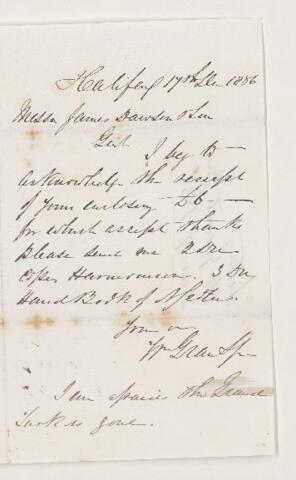 Halifax 17th Dec 1856
Messrs James Dawson & Son
Gent
I beg to
acknowledge the receipt
of yours enclosing £6 —
for which accept thanks
Please send me 2 Doz
Copies Harmonicon. 3 Doz
Hand Book of
Yours
Wm Grant
I am afraid the Grand
Turk is gone.